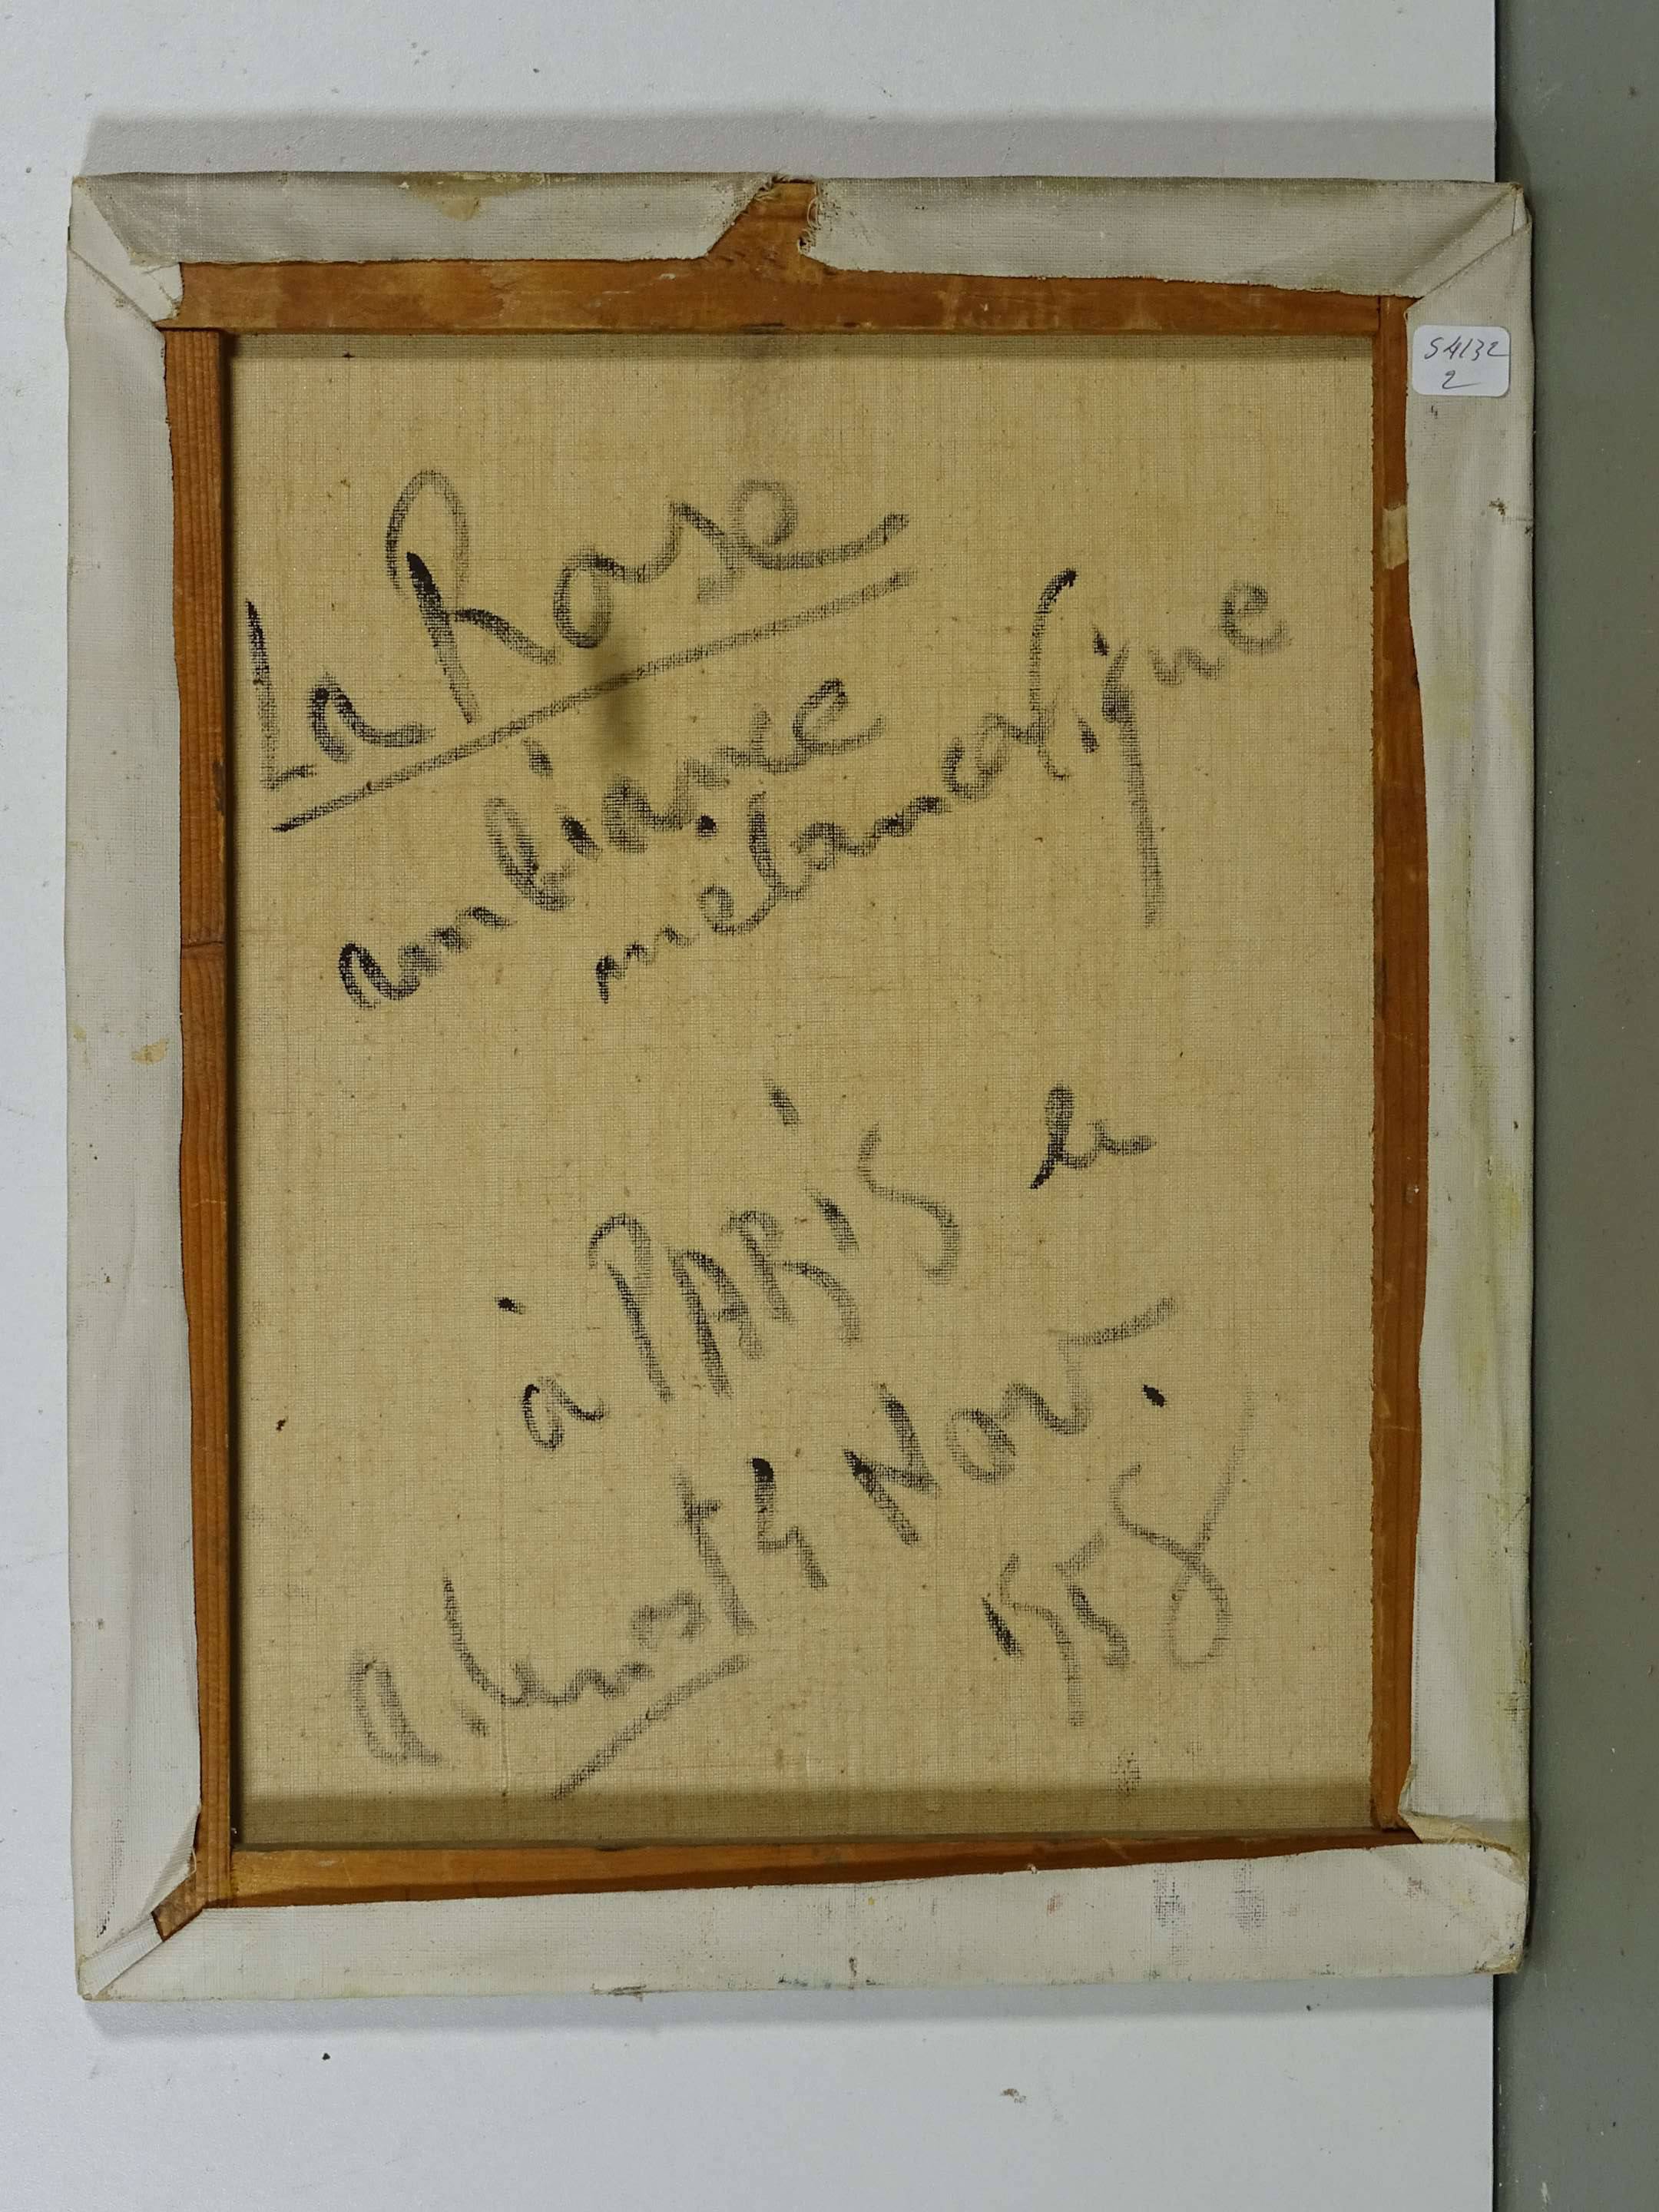 S4132
2
La Rose
ambiance
mélancolique
à PARIS le
4 Nov.
1958